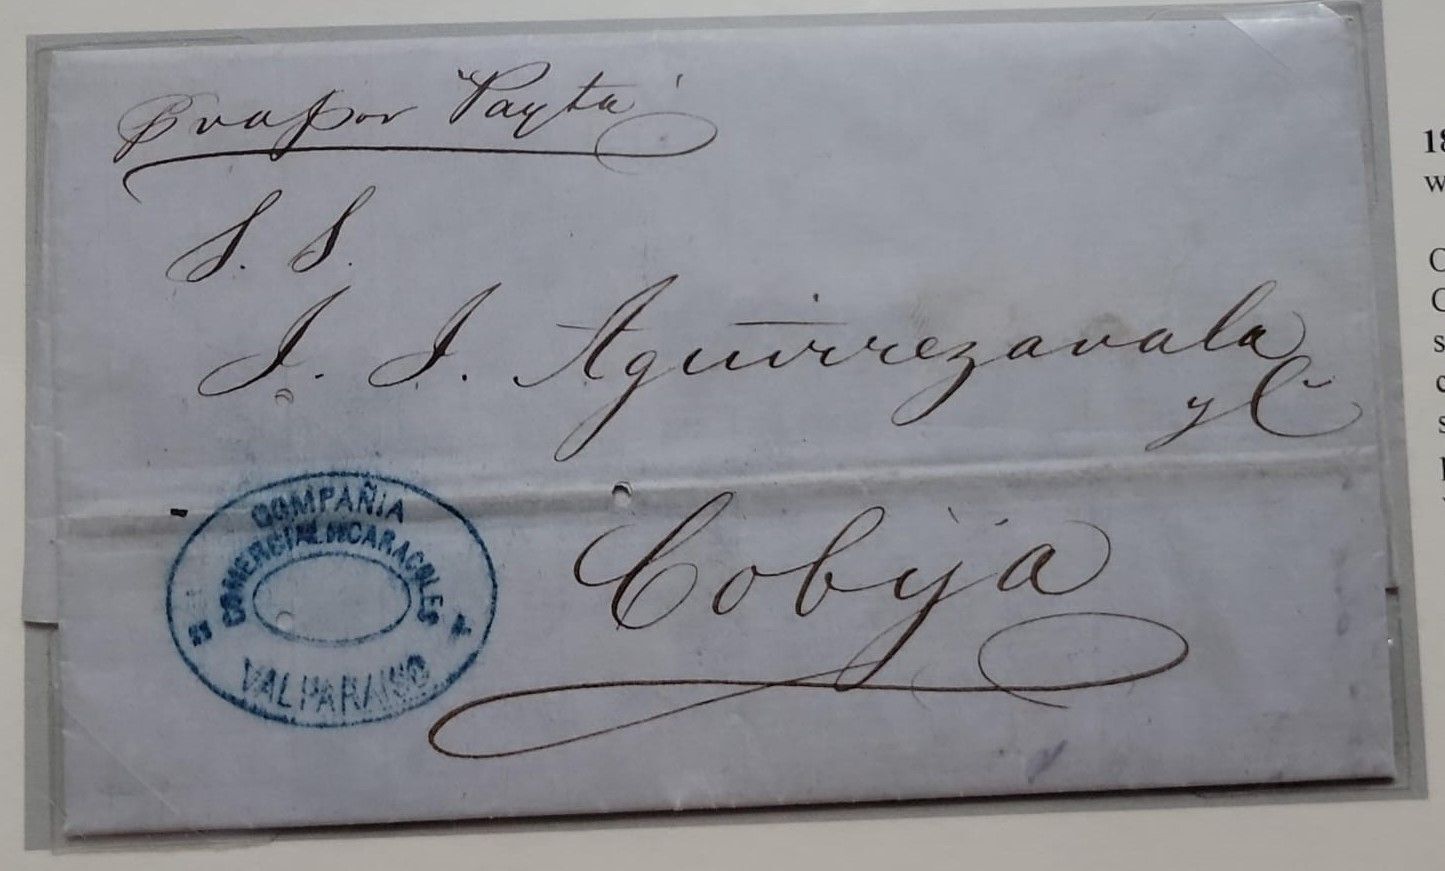 P vapor "Payta"
S. S.
J. J. Aguirrezavala
y C
Cobija
COMPAÑIA
COMERCIAL DE CARACOLES
VALPARAISO
18
w
s
c
s